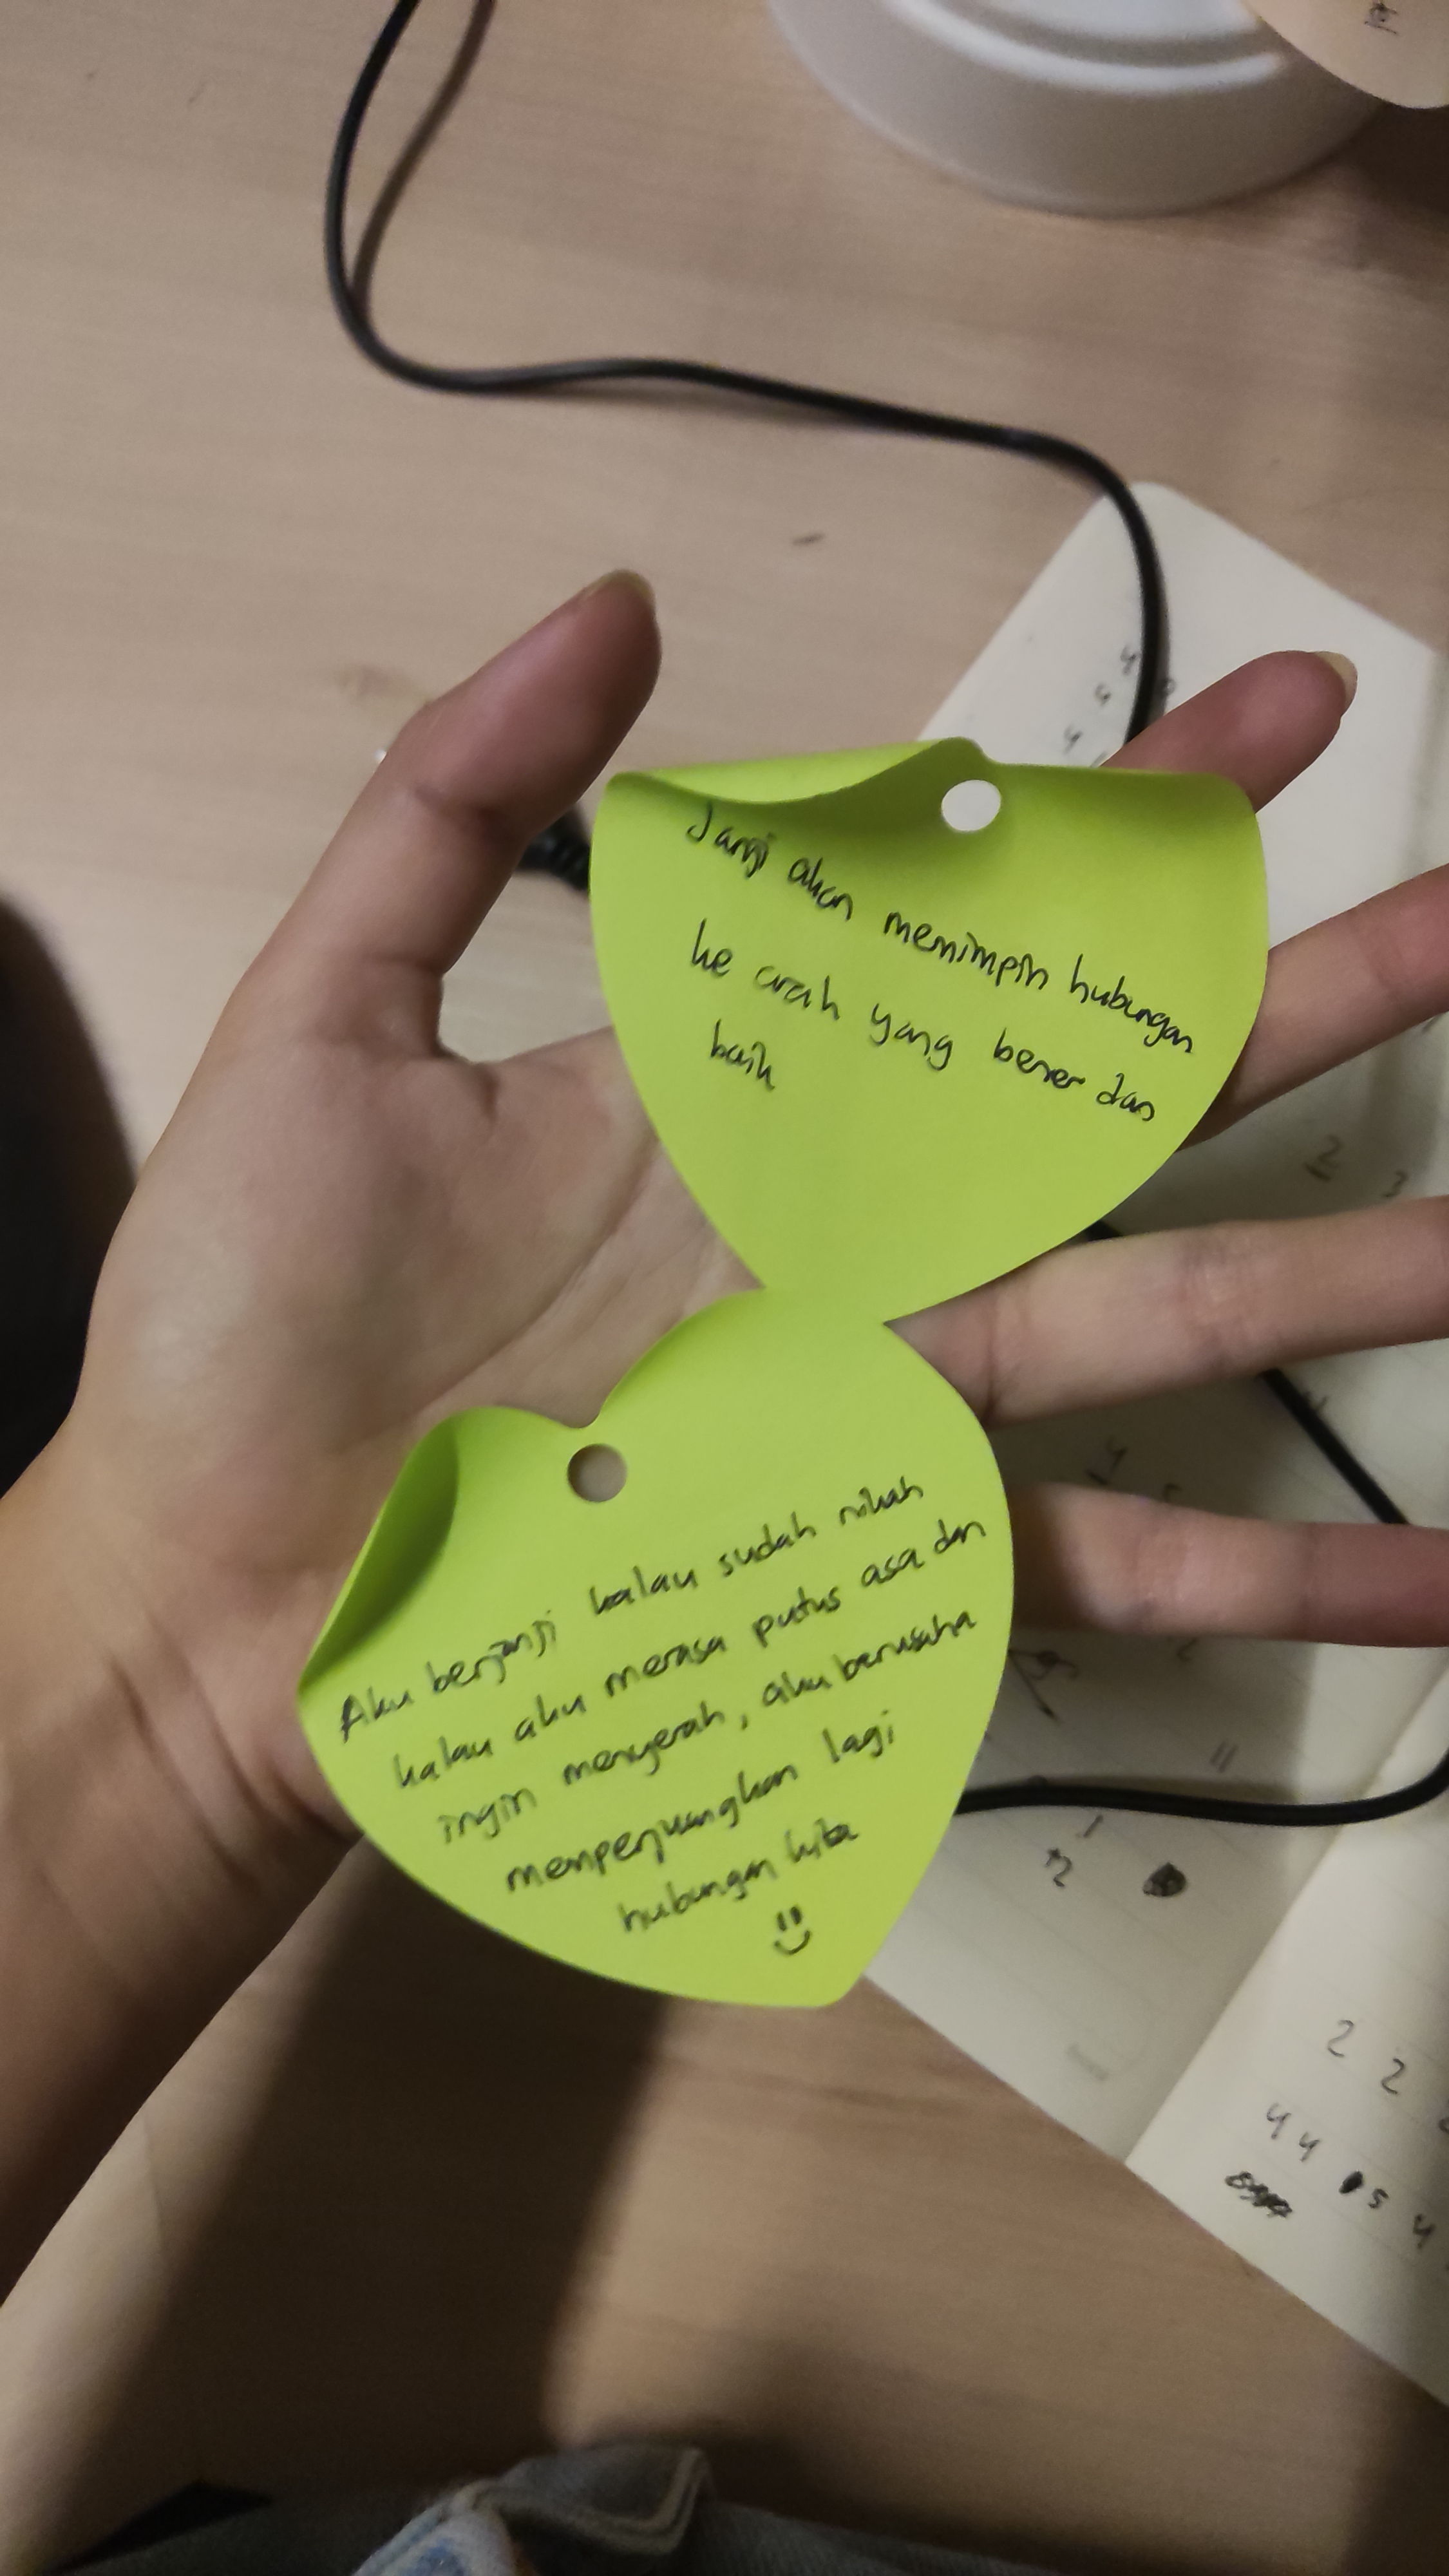 Janji akan memimpin hubungan
ke arah yang bener dan
baik
Aku berjanji kalau sudah nikah
kalau aku merasa putus asa dan
ingin menyerah, aku berusaha
memperjuangkan lagi
hubungan kita
2
3
4
11
1
2
2 2
4 4
5 4